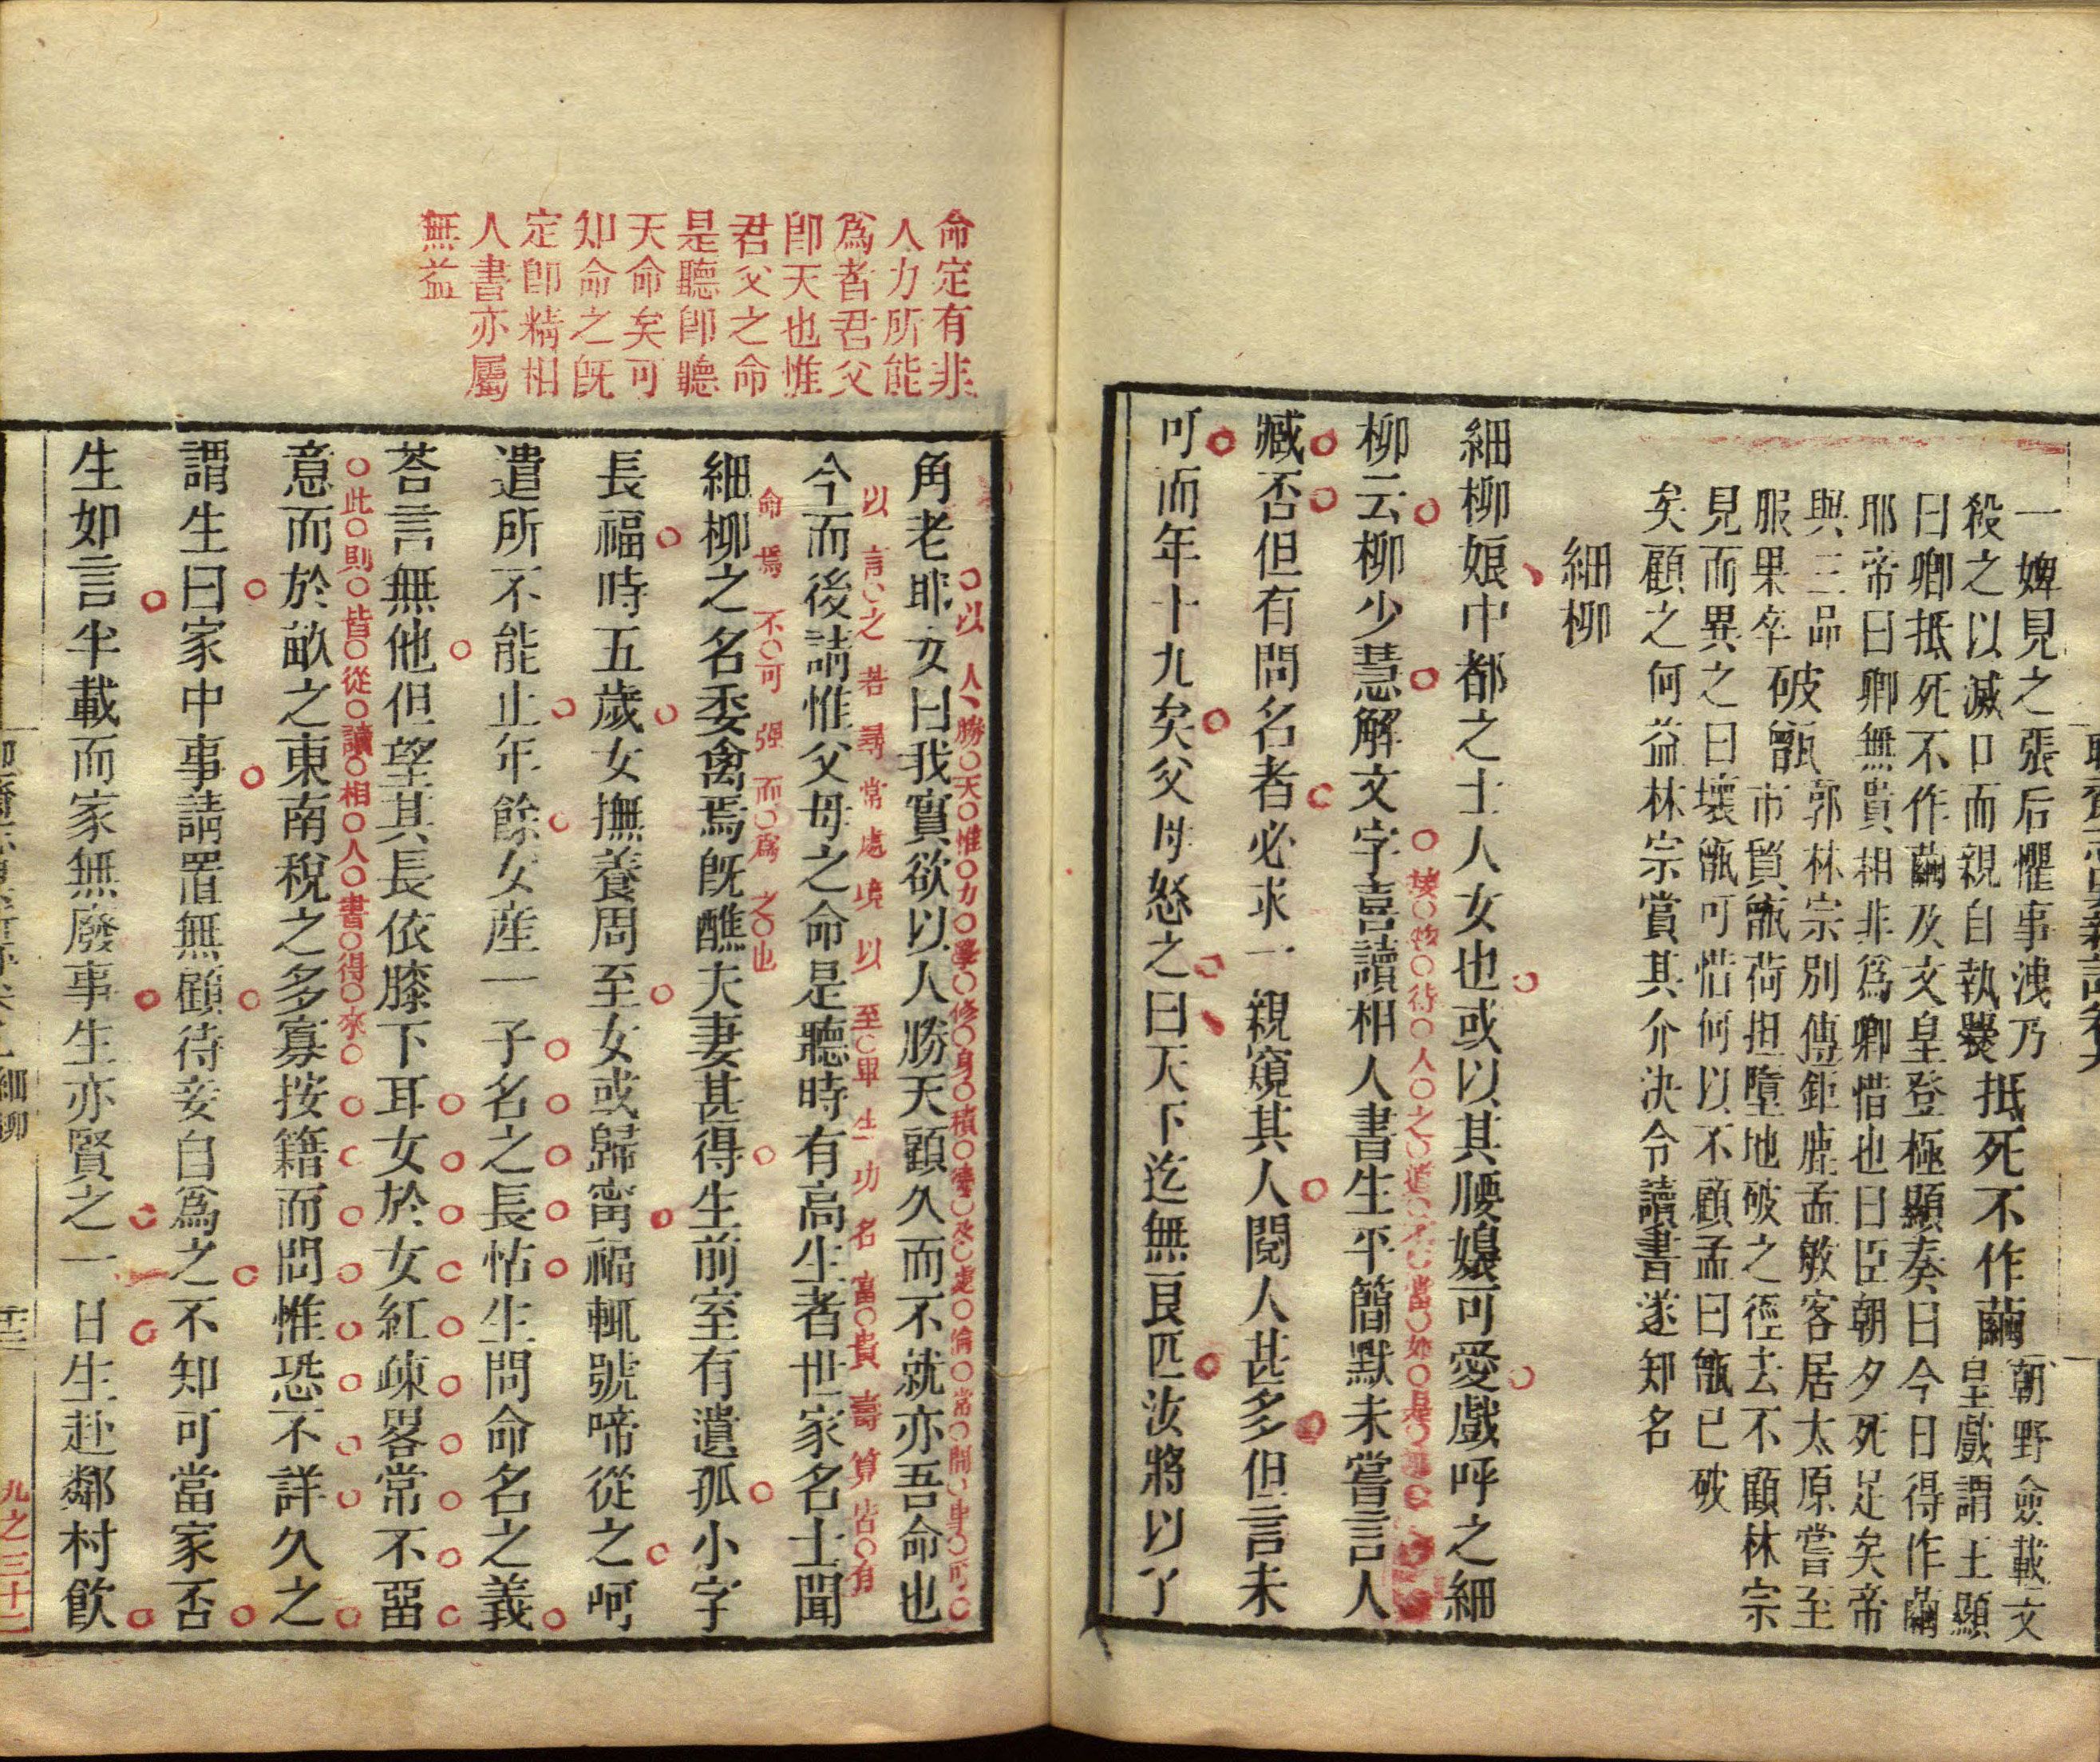 一婢見之張后懼事洩乃
殺之以滅口而親自執爨
抵死不作繭
朝野僉載文
皇戲謂王顯
曰卿抵死不作繭及文皇登極顯奏曰今日得作繭
耶帝曰卿無貴相非爲卿惜也曰臣朝夕死足矣帝
與三品
破甑
郭林宗別傳鉅鹿孟敏客居太原嘗至
服果卒
市貿甑荷担墮地破之徑去不顧林宗
見而異之曰壞甑可惜何以不顧孟曰甑已破
矣顧之何益林宗賞其介決令讀書遂知名
細柳
細柳娘中都之士人女也或以其腰嬛可愛戲呼之細
柳云柳少慧解文字喜讀相人書生平簡默未嘗言人
臧否但有問名者必求一親窺其人閱人甚多但言未
可而年十九矣父母怒之曰天下迄無良匹汝將以丫
命定有非
人力所能
爲者君父
卽天也惟
君父之命
是聽卽聽
天命矣可
知命之旣
定卽精相
人書亦屬
無益
角老耶女曰我實欲以人勝天顧久而不就亦吾命也
今而後請惟父母之命是聽時有高生者世家名士聞
以言之若尋常處境以至畢生功名富貴壽算皆有
細柳之名委禽焉旣醮夫妻甚得生前室有遺孤小字
命焉不可强而爲之也
長福時五歲女撫養周至女或歸甯福輒號啼從之呵
遣所不能止年餘女産一子名之長怙生問命名之義
荅言無他但望其長依膝下耳女於女紅疎畧常不畱
此則皆從讀相人書得來
意而於畝之東南稅之多寡按籍而問惟恐不詳久之
謂生曰家中事請置無顧待妾自爲之不知可當家否
生如言半載而家無廢事生亦賢之一日生赴鄰村飮
細柳
九之三十二